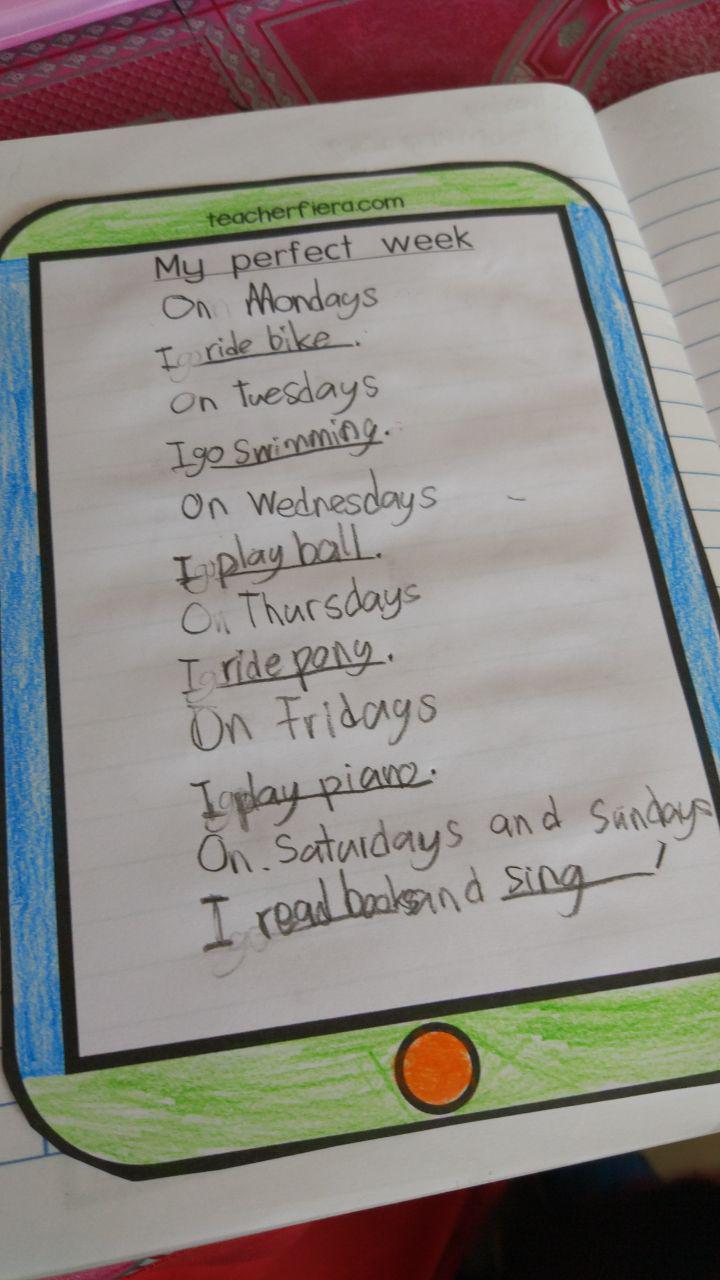 teacherfiera.com
My perfect week
On Mondays
I ride bike.
On Tuesdays
I go swimming.
On Wednesdays
I play ball.
On Thursdays
I ride pony.
On Fridays
I play piano.
On Saturdays and Sundays
I read books and sing!